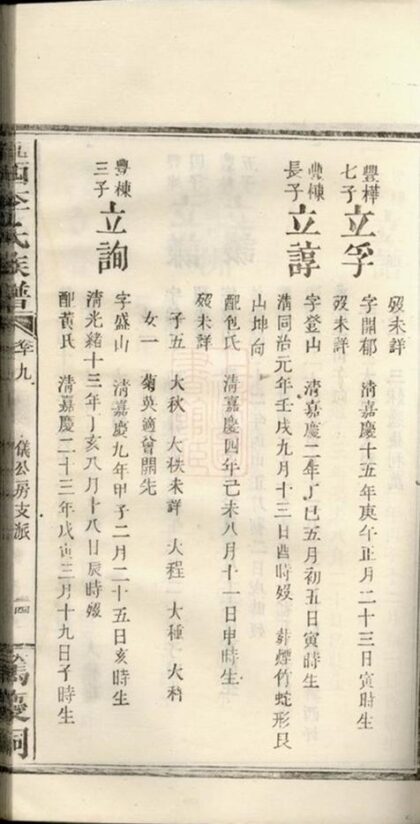 歿未詳
豐樺
七子
立孚
字開郁 清嘉慶十五年庚午正月二十三日寅時生
歿未詳
豐棟
長子
立諄
字登山 清嘉慶二年丁巳五月初五日寅時生
清同治元年壬戌九月十三日酉時歿 葬煙竹蛇形艮
山坤向
配包氏 清嘉慶四年己未八月十一日申時生
歿未詳
子五 大秋 大秩未詳 大程 大種 大科
女一 菊英適曾開先
豐棟
三子
立詢
字盛山 清嘉慶九年甲子二月二十五日亥時生
清光緒十三年丁亥八月十八日辰時歿
配黃氏 清嘉慶二十三年戊寅三月十九日子時生
西李氏族譜
卷九
儀公房支派